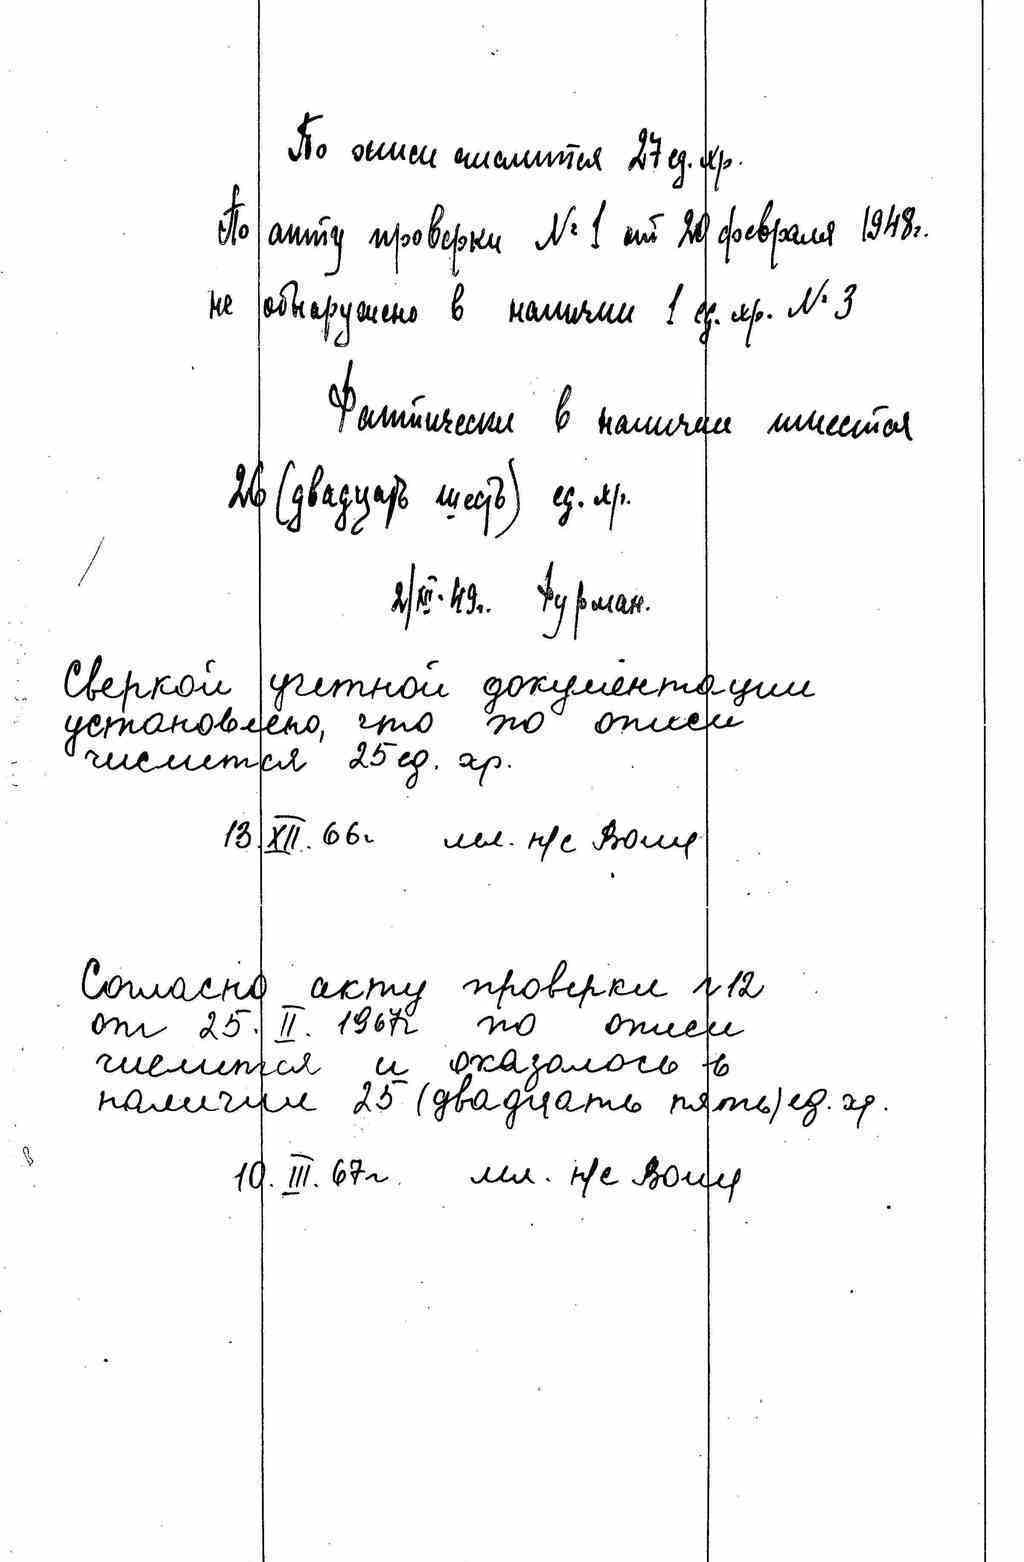 По описи числится 27 ед. хр.
По акту проверки № 1 от 20 февраля 1948г.
не обнаружено в наличии 1 ед. хр. № 3
Фактически в наличии имеется
26 (двадцать шесть) ед. хр.
2/XII-49г. Фурман.
Сверкой учетной документации
установлено, что по описи
числится 25 ед. хр.
13.XII.66г мл. н/с
Согласно акту проверки №12
от 25.II.1967г по описи
числится и оказалось в
наличии 25 (двадцать пять) ед. хр.
10.III.67г. мл. н/с